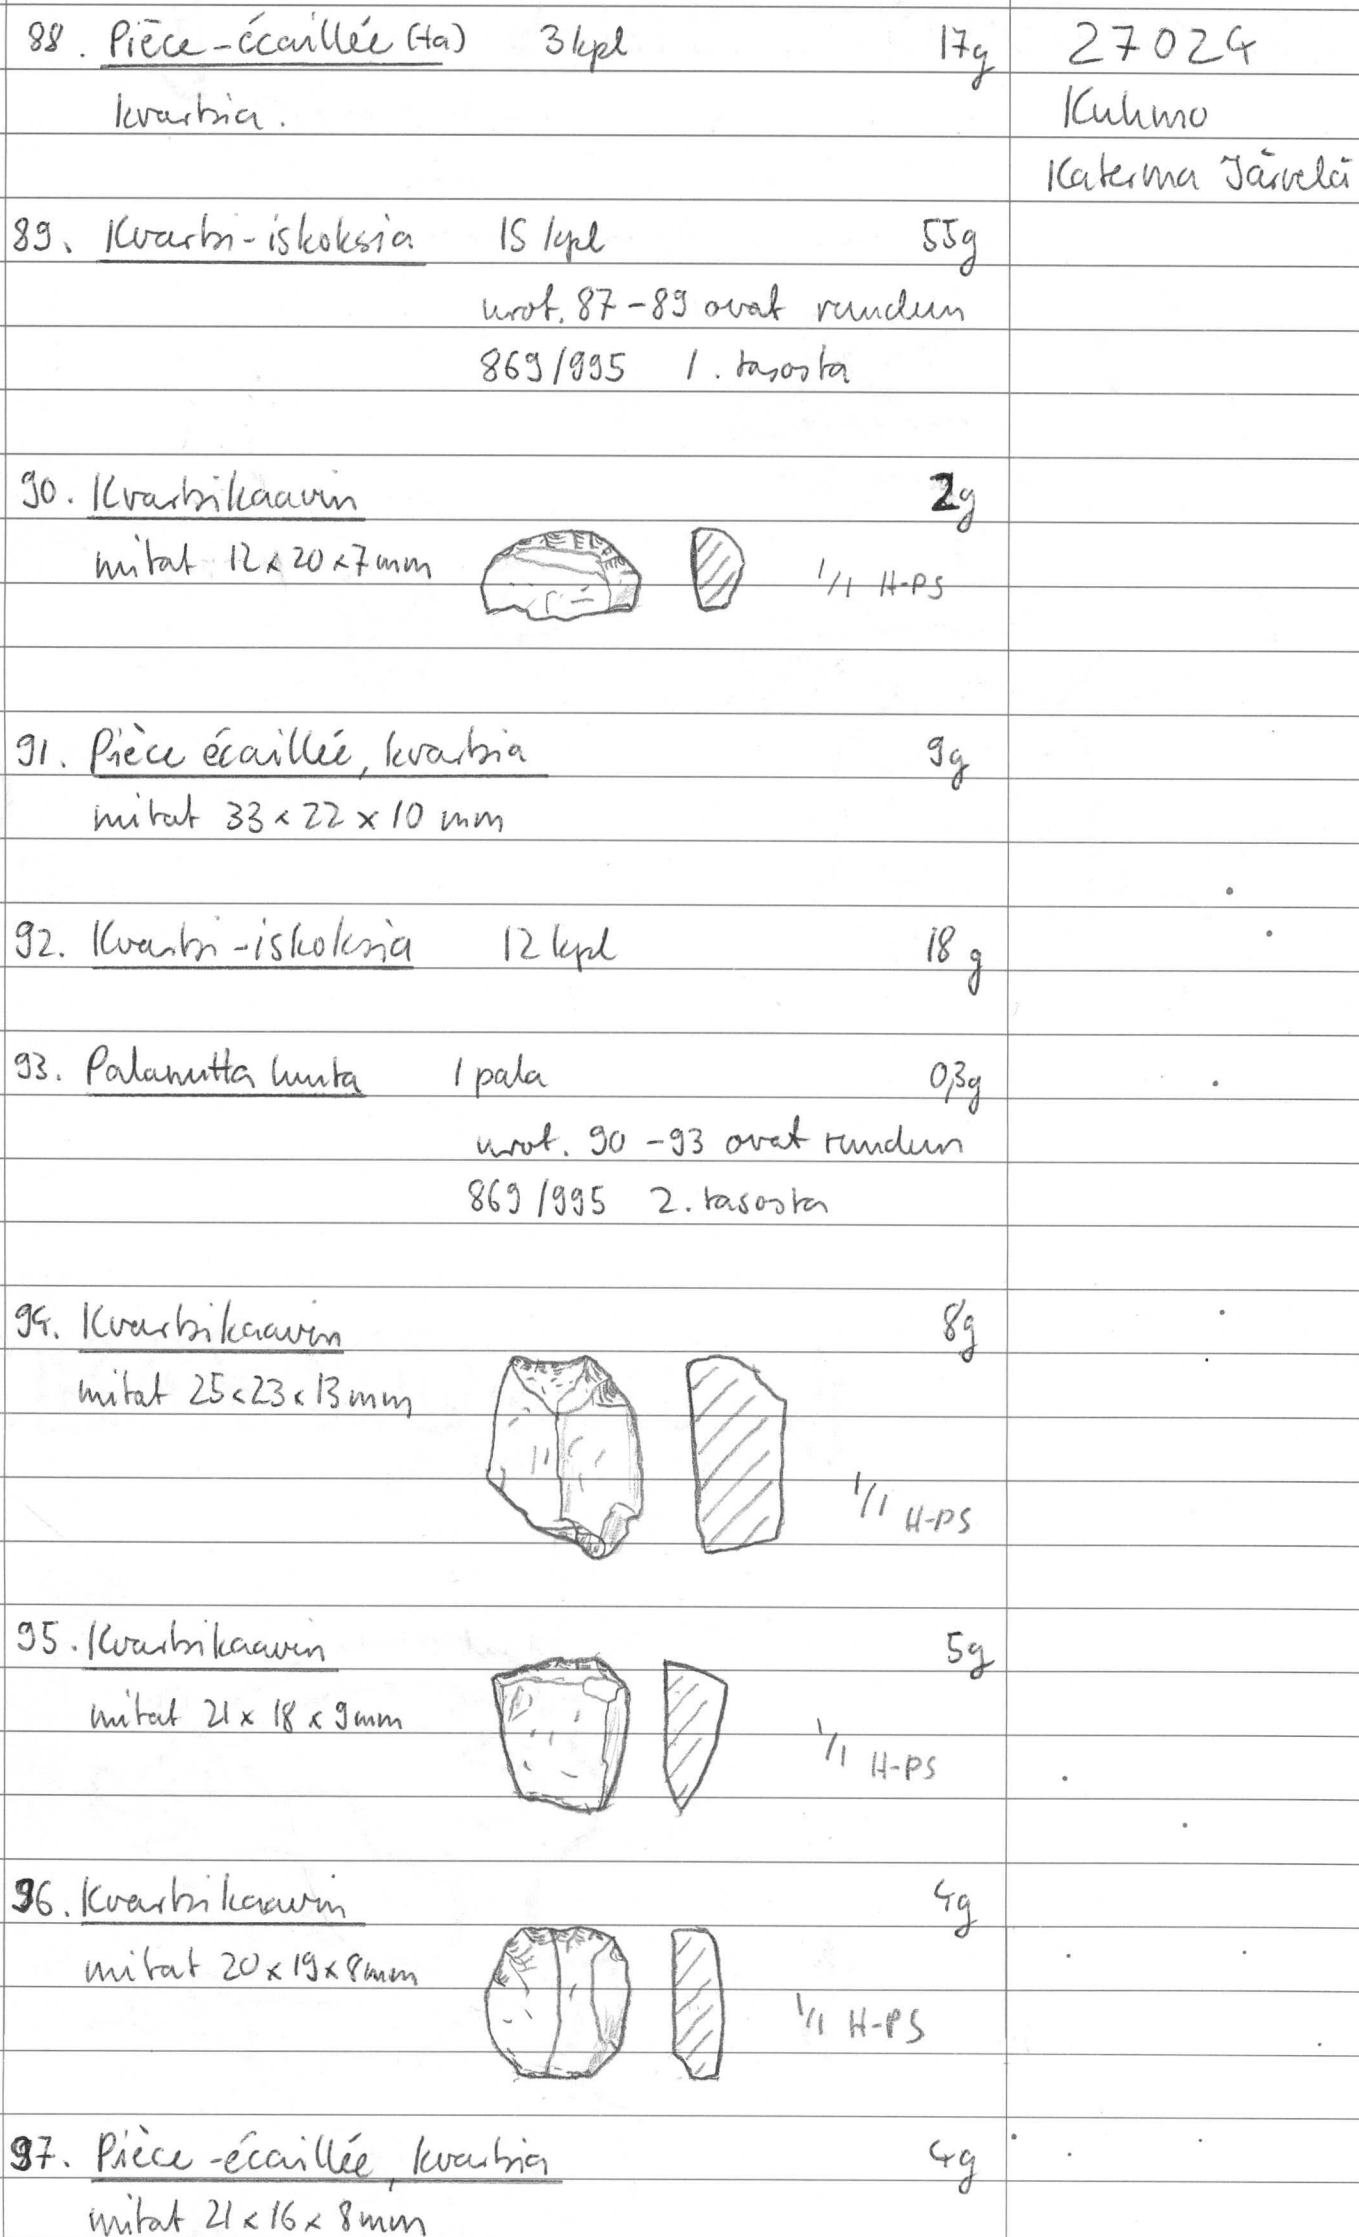 88. Pièce-écaillée (ta) 3 kpl 17g
kvartsia.
27024
Kuhmo
Katerma Järvelä
89. Kvartsi-iskoksia 15 kpl 55g
nrot. 87-89 ovat ruudun
869/995 1. tasosta
90. Kvartsikaavin 2g
mitat 12 x 20 x 7 mm
1/1 H-PS
91. Pièce écaillée, kvartsia 9g
mitat 33 x 22 x 10 mm
92. Kvartsi-iskoksia 12 kpl 18 g
93. Palanutta luuta 1 pala 0,3g
nrot. 90-93 ovat ruudun
869/995 2. tasosta
94. Kvartsikaavin 8g
mitat 25 x 23 x 13 mm
1/1 H-PS
95. Kvartsikaavin 5g
mitat 21 x 18 x 9 mm
1/1 H-PS
96. Kvartsikaavin 4g
mitat 20 x 19 x 8 mm
1/1 H-PS
97. Pièce-écaillée, kvartsia 4g
mitat 21 x 16 x 8 mm